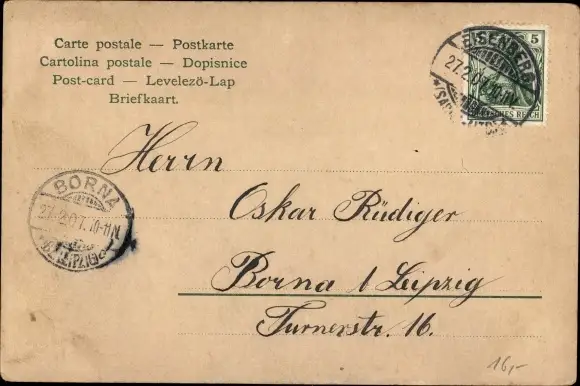 Carte postale — Postkarte
Cartolina postale — Dopisnice
Post-card — Levelezö-Lap
Briefkaart.
5
EISENBERG
27.2.07. 10-11N.
DEUTSCHES REICH
BORNA
27.2.07. 10-11N.
(BZ. LEIPZIG)
Herrn
Oskar Rüdiger
Borna b/Leipzig
Turnerstr. 16.
16,-